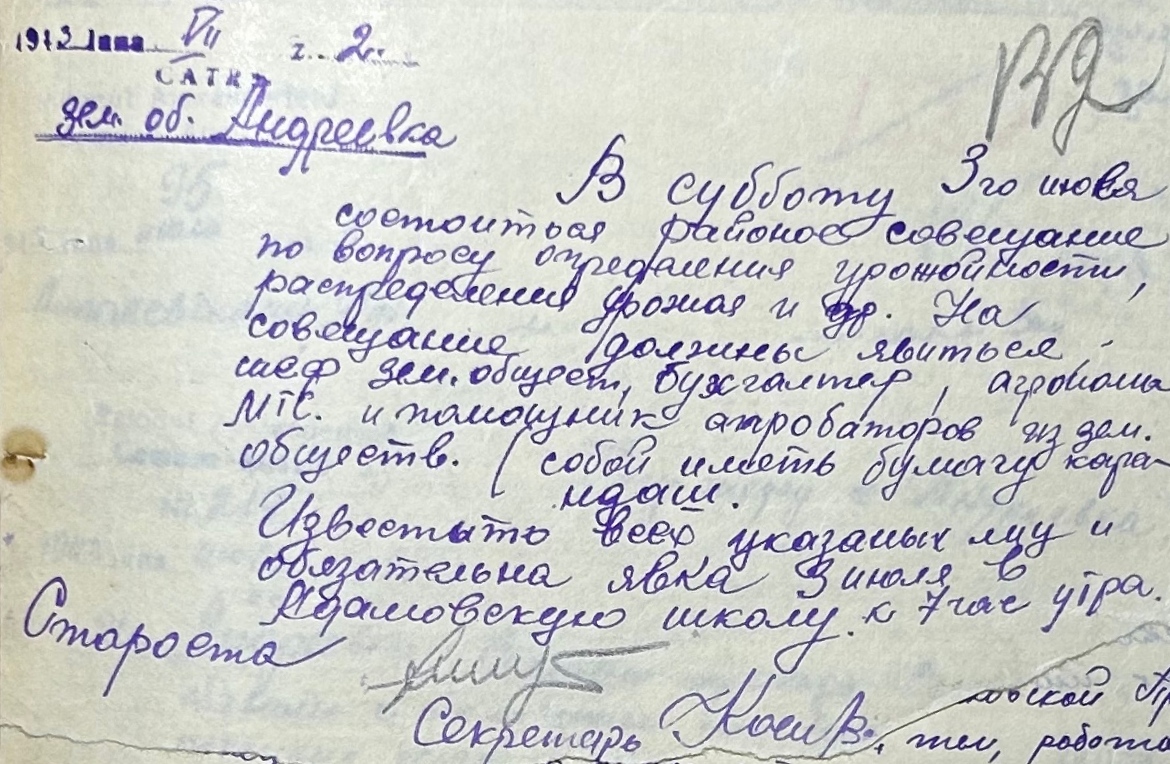 1943 липа VII г. 2.
САТК
зем. об. Андреевка
В субботу 3го июля
состоиться районое совещание
по вопросу определения урожойности,
распределения урожая и др. На
совещание должны явиться :
шеф зем. общест, бухгалтер, агрономы
МТС. и помощник апробаторов из зем.
обществ. (собой иметь бумагу кара-
ндаш.
Известить всех указаных лиц и
обязательна явка 3 июля в
Адамовскую школу к 7 час утра.
Староста
Секретарь
овской
тел, работа